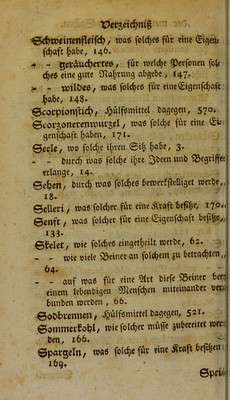 Verzeichniß
Schweinenfleisch, was solches für eine Eigen-
schaft habe, 146.
- - geräuchertes, für welche Personen sol-
ches eine gute Nahrung abgebe, 147.
- - wildes, was solches für eine Eigenschaft
habe, 148.
Scorpionstich, Hülfsmittel dagegen, 570.
Scorzonerenwurzel, was solche für eine Ei-
genschaft haben, 171.
Seele, wo solche ihren Sitz habe, 3.
- - durch was solche ihre Ideen und Begriffe
erlange, 14.
Sehen, durch was solches bewerkstelliget werde,
18.
Selleri, was solcher für eine Kraft besitze, 170.
Senft, was solcher für eine Eigenschaft besitze,
133.
Skelet, wie solches eingetheilt werde, 62.
- - wie viele Beiner an solchem zu betrachten,
64.
- - auf was für eine Art diese Beiner bey
einem lebendigen Menschen miteinander ver-
bunden werden, 66.
Sodbrennen, Hülfsmittel dagegen, 521.
Sommerkohl, wie solcher müsse zubereitet wer-
den, 166.
Spargeln, was solche für eine Kraft besitzen,
169.
Spei-